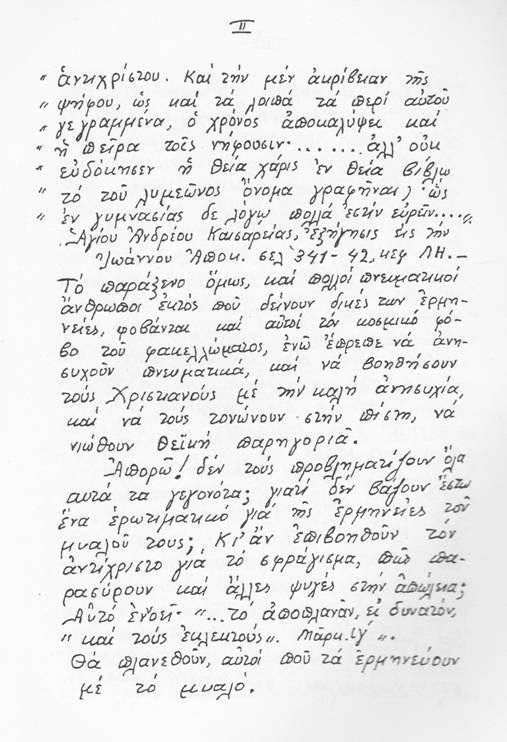 II
„ ἀντιχρίστου. Καί τήν μέν ἀκρίβειαν τῆς
„ ψήφου, ὡς καί τά λοιπά τά περί αὐτοῦ
„ γεγραμμένα, ὁ χρόνος ἀποκαλύψει καί
„ ἡ πεῖρα τοῖς νήφουσιν........ἀλλ' οὐκ
„ εὐδόκησεν ἡ θεία χάρις ἐν θεία βίβλω
„ τό τοῦ λυμεῶνος ὄνομα γραφῆναι, ὡς
„ ἐν γυμνασίας δε λόγω πολλά ἐστίν εὑρεῖν....„
Ἁγίου Ἀνδρέου Καισαρείας, ἐξήγησις εἰς τήν
Ἰωάννου Ἀποκ. σελ 341-42, κεφ ΛΗ.—
Τό παράξενο ὅμως, καί πολλοί πνευματικοί
ἄνθρωποι ἐκτός πού δείνουν δικές των ἑρμη-
νείες, φοβάνται καί αὐτοί τόν κοσμικό φό-
βο τοῦ φακελλώματος, ἐνῶ ἔπρεπε νά ἀνη-
συχοῦν πνευματικά, καί νά βοηθήσουν
τούς Χριστιανούς μέ τήν καλή ἀνησυχία,
καί νά τούς τονώνουν στήν πίστη, νά
νιώθουν θεϊκή παρηγοριά.
Ἀπορῶ! δέν τούς προβληματίζουν ὅλα
αυτά τα γεγονότα; γιατί δέν βάζουν ἔστω
ἕνα ἐρωτιματικό γιά τῆς ἑρμηνείες τοῦ
μυαλοῦ τους; Κι' ἄν ἐπιβοηθοῦν τόν
ἀντίχριστο γιά τό σφράγισμα, πῶς πα-
ρασύρουν καί ἄλλες ψυχές στήν ἀπώλεια;
Αὐτό ἐνοεῖ- „...τό ἀποπλανᾶν, εἰ δυνατόν,
„ καί τούς ἐκλεκτούς„. Μάρκ. ιγ' „.
Θά πλανεθοῦν, αὐτοί πού τά ἑρμηνεύουν
μέ τό μυαλό.